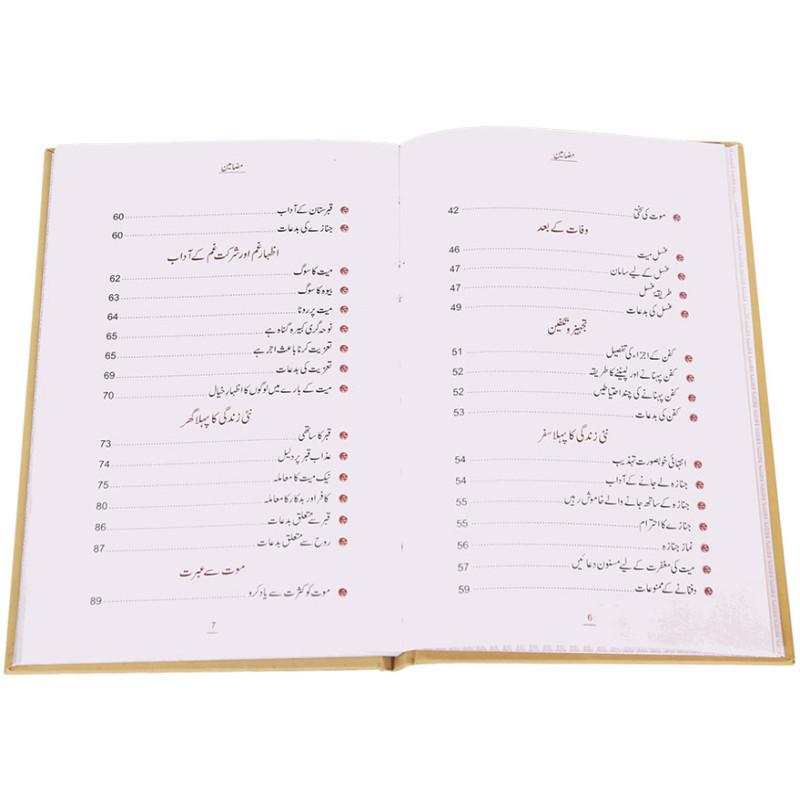 مضامین
موت کی سختی 42
وفات کے بعد
غسل میت 46
غسل کے لیے سامان 47
طریقۂ غسل 47
غسل کی بدعات 49
تجہیز و تکفین
کفن کے اجزاء کی تفصیل 51
کفن پہنانے اور لپیٹنے کا طریقہ 52
کفن پہنانے کی چند احتیاطیں 52
کفن کی بدعات 53
نئی زندگی کا پہلا سفر
انتہائی خوبصورت تہذیب 54
جنازہ لے جانے کے آداب 54
جنازہ کے ساتھ جانے والے خاموش رہیں 55
جنازے کا احترام 55
نماز جنازہ 56
میت کی مغفرت کے لیے مسنون دعائیں 57
دفنانے کے ممنوعات 59
6
مضامین
قبرستان کے آداب 60
جنازے کی بدعات 60
اظہار غم اور شرکت غم کے آداب
میت کا سوگ 62
بیوہ کا سوگ 63
میت پر رونا 64
نوحہ گری کبیرہ گناہ ہے 65
تعزیت کرنا باعث اجر ہے 65
تعزیت کی بدعات 69
میت کے بارے میں لوگوں کا اظہار خیال 70
نئی زندگی کا پہلا گھر
قبر کا ساتھی 73
عذاب قبر پر دلیل 74
نیک میت کا معاملہ 75
کافر اور بدکار کا معاملہ 80
قبر سے متعلق بدعات 86
روح سے متعلق بدعات 87
موت سے عبرت
موت کو کثرت سے یاد کرو 89
7